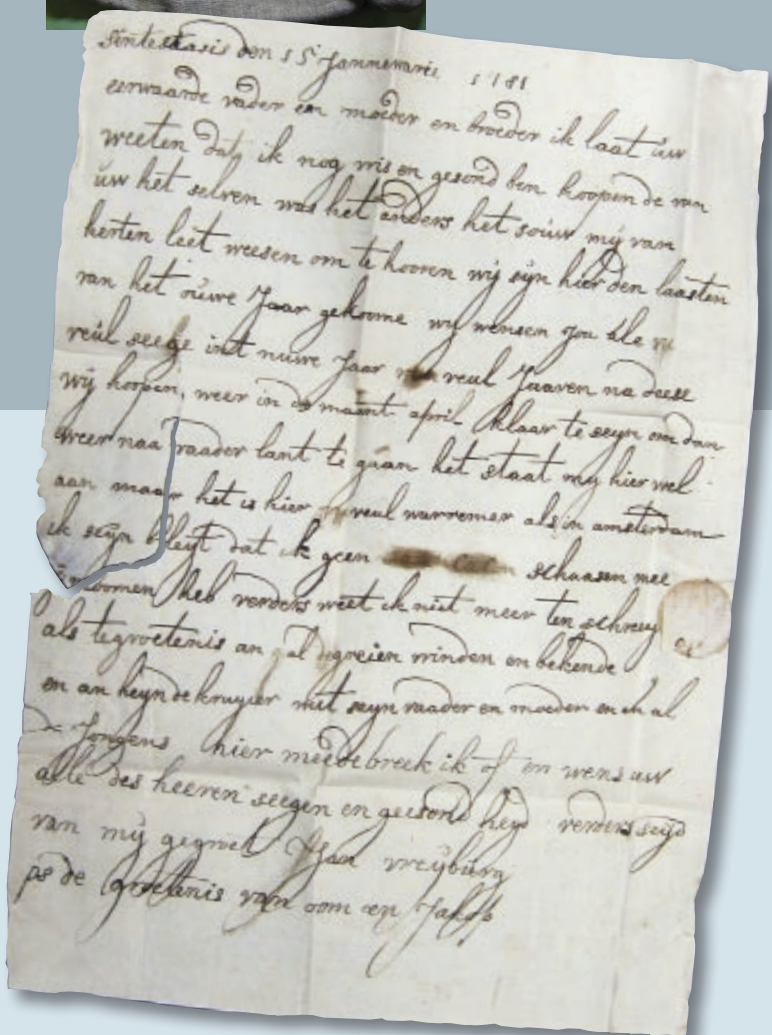 sintestasis den 15 Jannewaris 1781
eerwaarde vader en moeder en broeder ik laat uw
weeten dat ik nog vris en gesond ben hoopende van
uw het selven was het anders het souw mij van
herten leet weesen om te hooren wij sijn hier den laasten
van het ouwe Jaar gekoome wij wensen jou alle
veul seege int nuwe Jaar veul Jaaren na deese
wij hoopen weer in de maant april klaar te seyn om dan
weer naa vaader lant te gaan het staat my hier wel
aan maar het is hier veul warremer als in amsterdam
ik seyn bleyt dat ik geen schaasen mee
genoomen heb verders weet ik niet meer ten schrey
als tegroetenis an al vrinden en bekende
en an heyn de kruyier mit seyn vaader en moeder en al
de Jongens hier meede breek ik of en wens uw
alle des heeren seegen en geesond heyd verders seyd
van mij gegroet Jan vreyburg
ps de groetenis van oom en Jakop